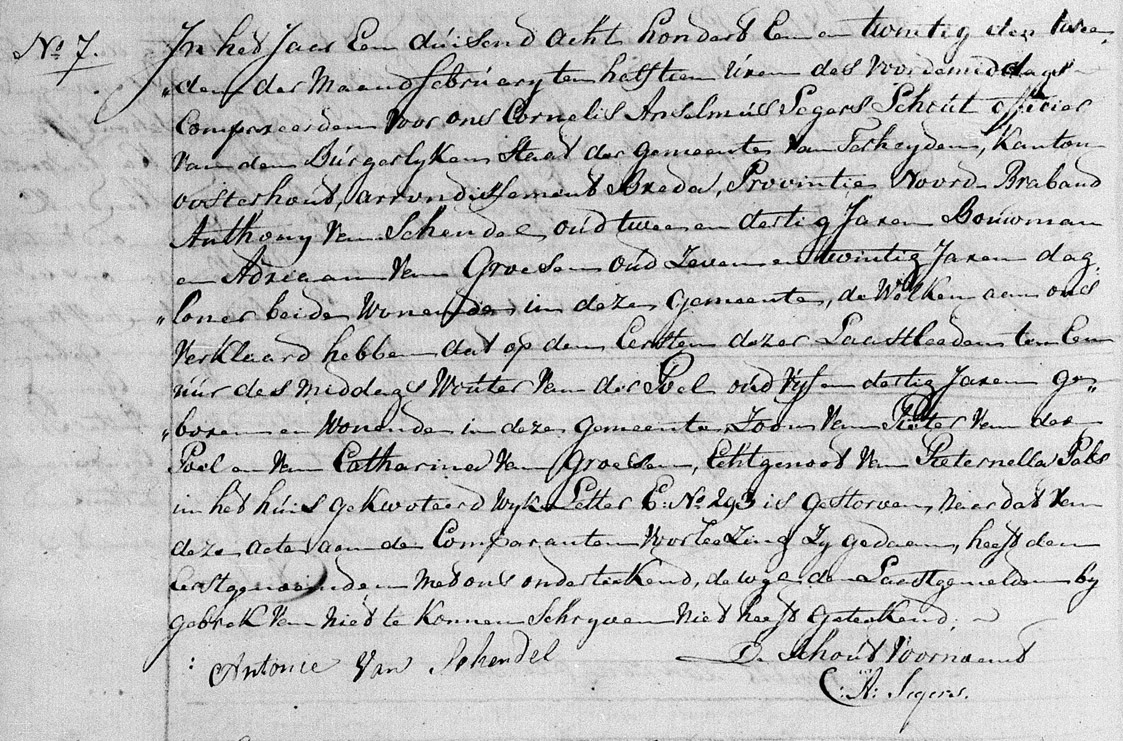 No 7.
In het Jaar Een duisend acht hondert Een en twintig den twee„
„den der Maand february ten half tien Uren des Voordemiddags
Compareerden Voor ons Cornelis Anselmus Segers Schout officier
van den Burgerlyken Staat der gemeente van Terheyden, Kanton
oosterhout, arrondissement Breda, Provintie Noord Braband
Anthony Van Schendel oud twee en dertig Jaren Bouwman
en Adriaan Van Groesen oud Zeven en twintig Jaren dag„
„loner beide Wonende in deze gemeente, de Welken aan ons
Verklaard hebben dat op den Eersten dezer Laastleeden ten Een
uur des middags Wouter Van der Poel oud Vyf en dertig Jaren ge„
„boren en Wonende in deze gemeente, Zoon Van Pieter Van der
Poel en Van Catharina Van Groesen, Echtgenoot Van Pieternella Pals
in het huis gekwoteerd Wyk Letter E. No. 293 is gestorven, Naar dat Van
deze acte aan de Comparanten Voorleezing Zy gedaen, heeft den
Eerstgenoemden met ons ondertekend, de wyl den Laastgemelden by
gebrek Van Niet te Konnen Schryven Niet heeft getekend.
Antonie Van Schendel
De Schout Voornoemt
C: A: Segers.